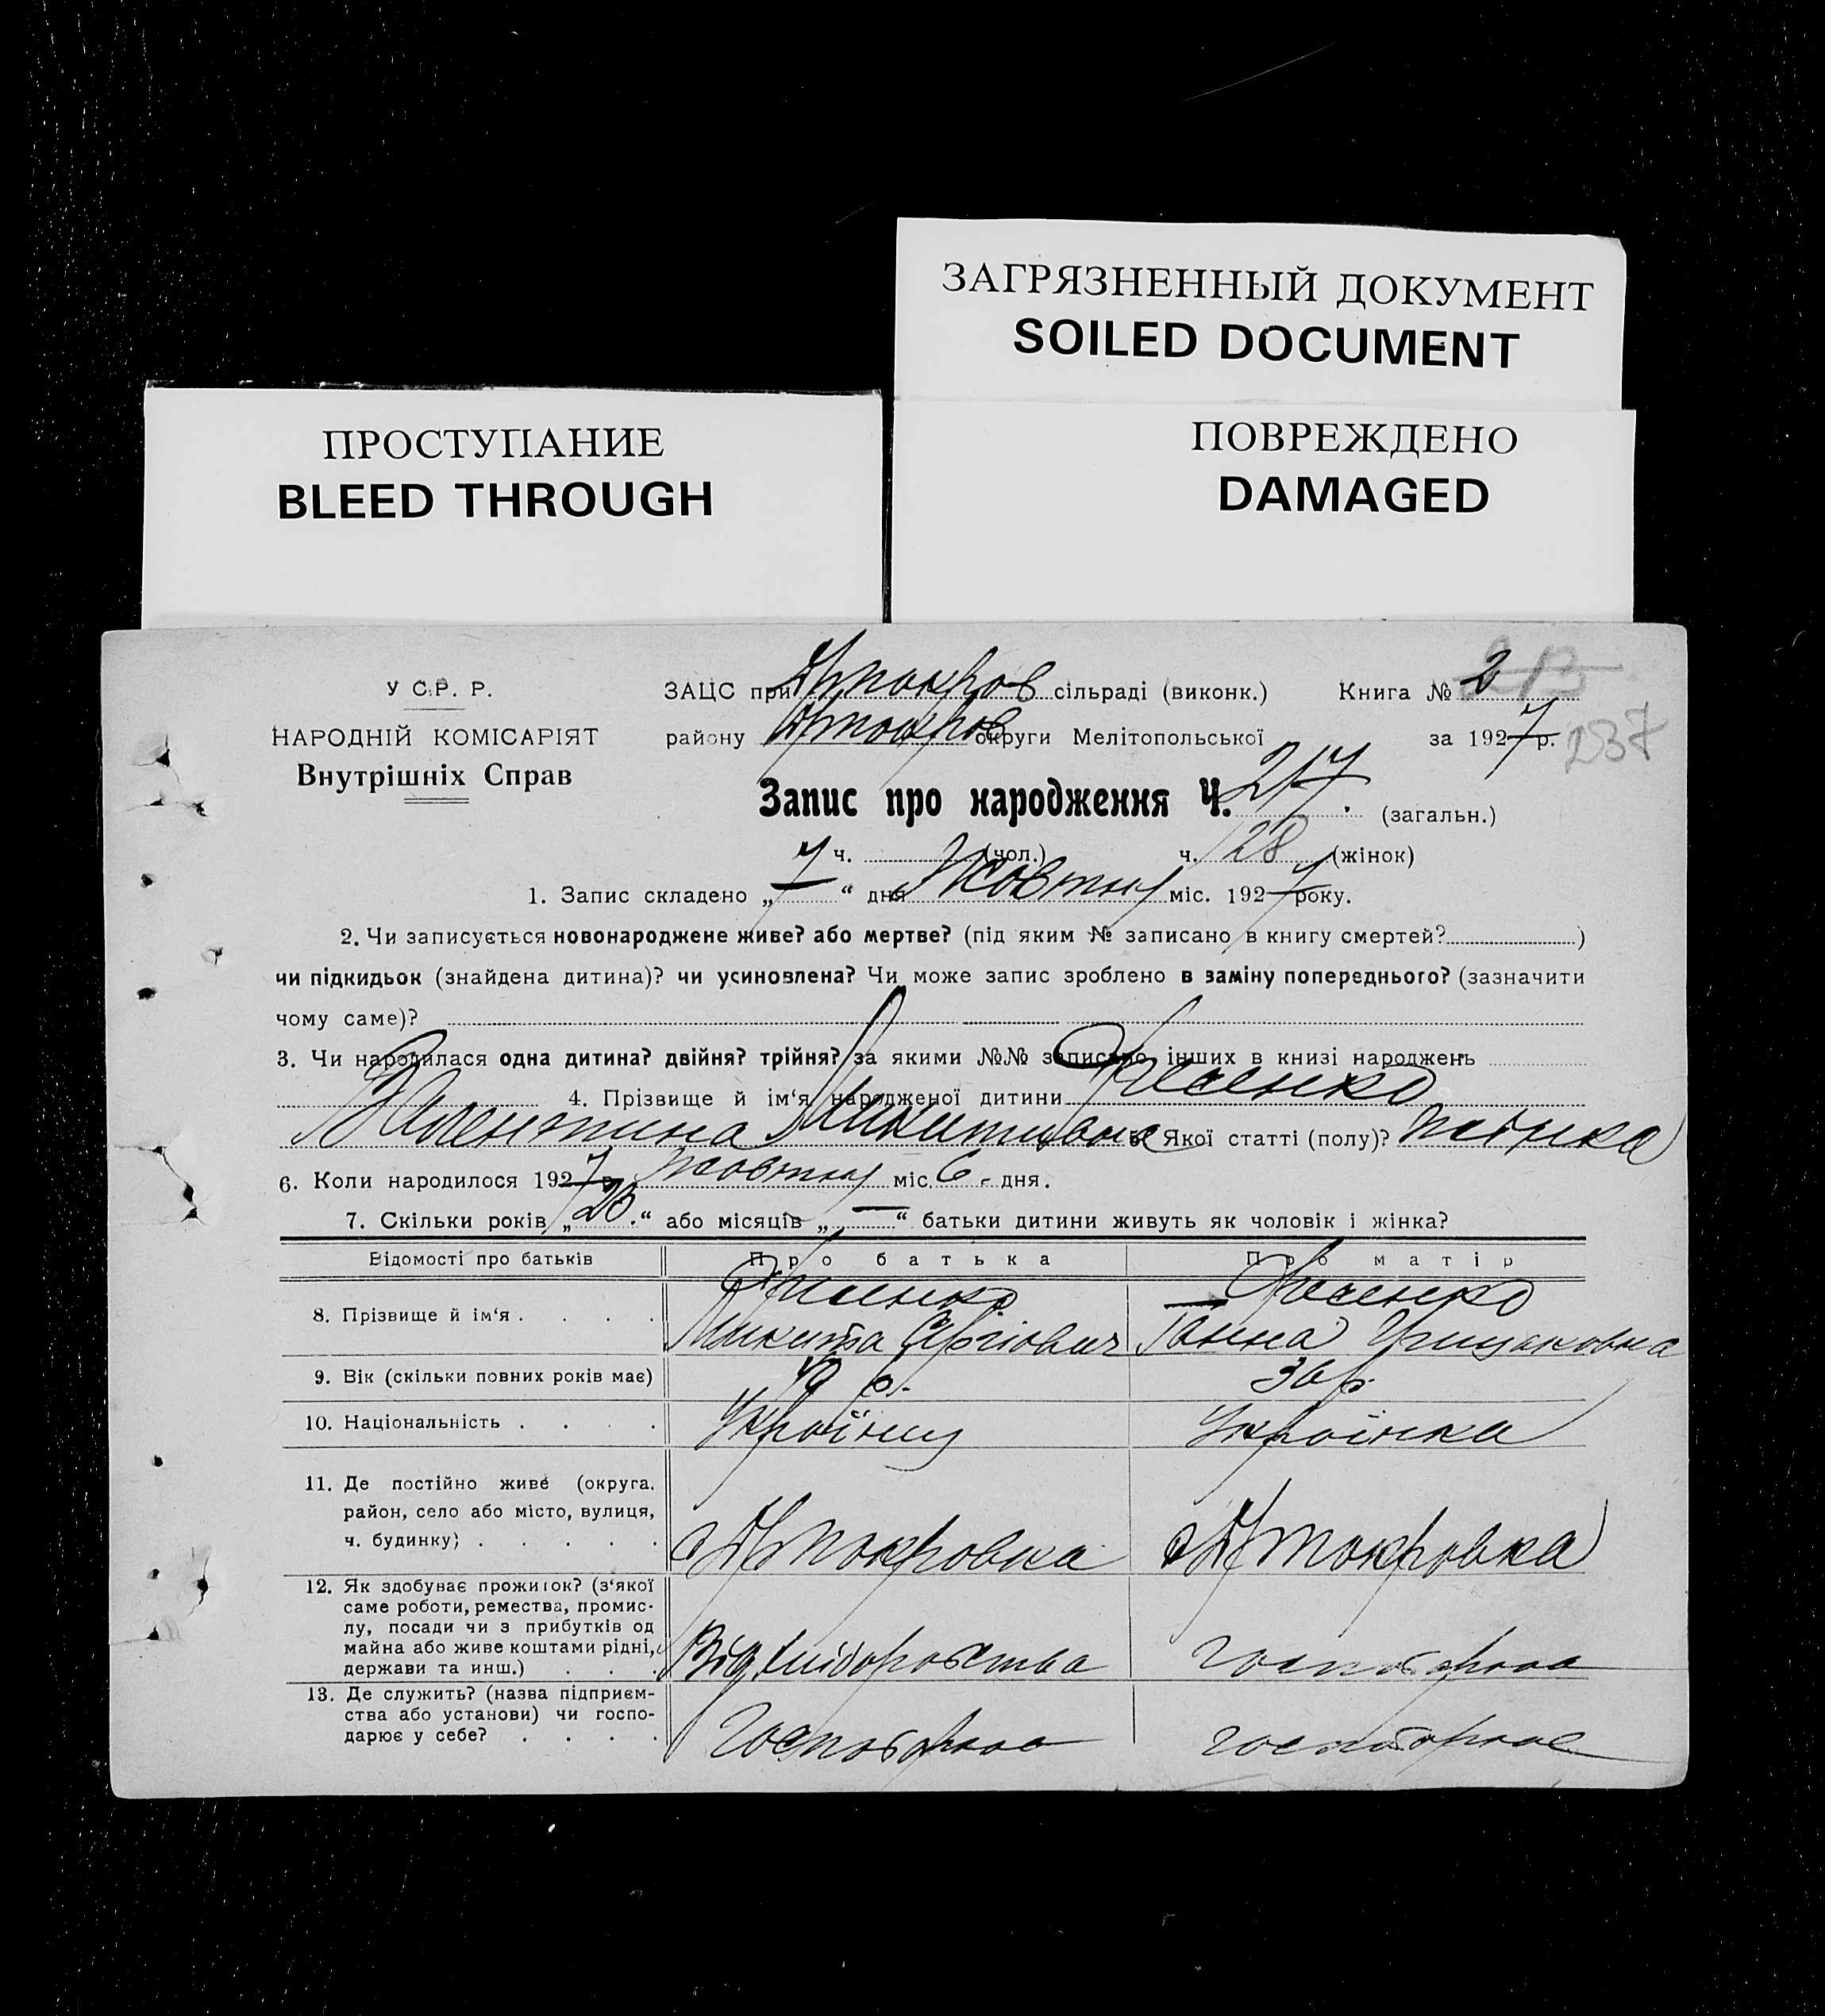 ЗАГРЯЗНЕННЫЙ ДОКУМЕНТ
SOILED DOCUMENT
ПРОСТУПАНИЕ
BLEED THROUGH
ПОВРЕЖДЕНО
DAMAGED
У С.Р. Р.
НАРОДНІЙ КОМІСАРІЯТ
Внутрішніх Справ
ЗАЦС при сільраді (виконк.) Книга № 2 213
району округи Мелітопольської за 1927 р. 237
Запис про народження Ч. 217 (загальн.)
ч. (чол.) ч. 128 (жінок)
1. Запис складено „7“ дня Жовтня міс. 1927 року.
2. Чи записується новонароджене живе? або мертве? (під яким № записано в книгу смертей? )
чи підкидьок (знайдена дитина)? чи усиновлена? Чи може запис зроблено в заміну попереднього? (зазначити
чому саме)?
3. Чи народилася одна дитина? двійня? трійня? за якими №№ записано інших в книзі народжень
4. Прізвище й ім‘я народженої дитини
Валентина Микитовна 5. Якої статті (полу)? жінка
6. Коли народилося 1927 р. жовтня міс. 6 дня.
7. Скільки років „20“ або місяців „—“ батьки дитини живуть як чоловік і жінка?
Відомості про батьків Про батька Про матір
8. Прізвище й ім‘я . . . .
Микита Сергіович Ганна
9. Вік (скільки повних років має) 40 р. 36 р.
10. Національність . . . . Українц Українка
11. Де постійно живе (округа.
район, село або місто, вулиця,
ч. будинку) . . . . .
12. Як здобуває прожиток? (з‘якої
саме роботи, ремества, промис-
лу, посади чи з прибутків од
майна або живе коштами рідні,
держави та инш.) . . . Від хліборобства
13. Де служить? (назва підприєм-
ства або установи) чи госпо-
дарює у себе? . . . .